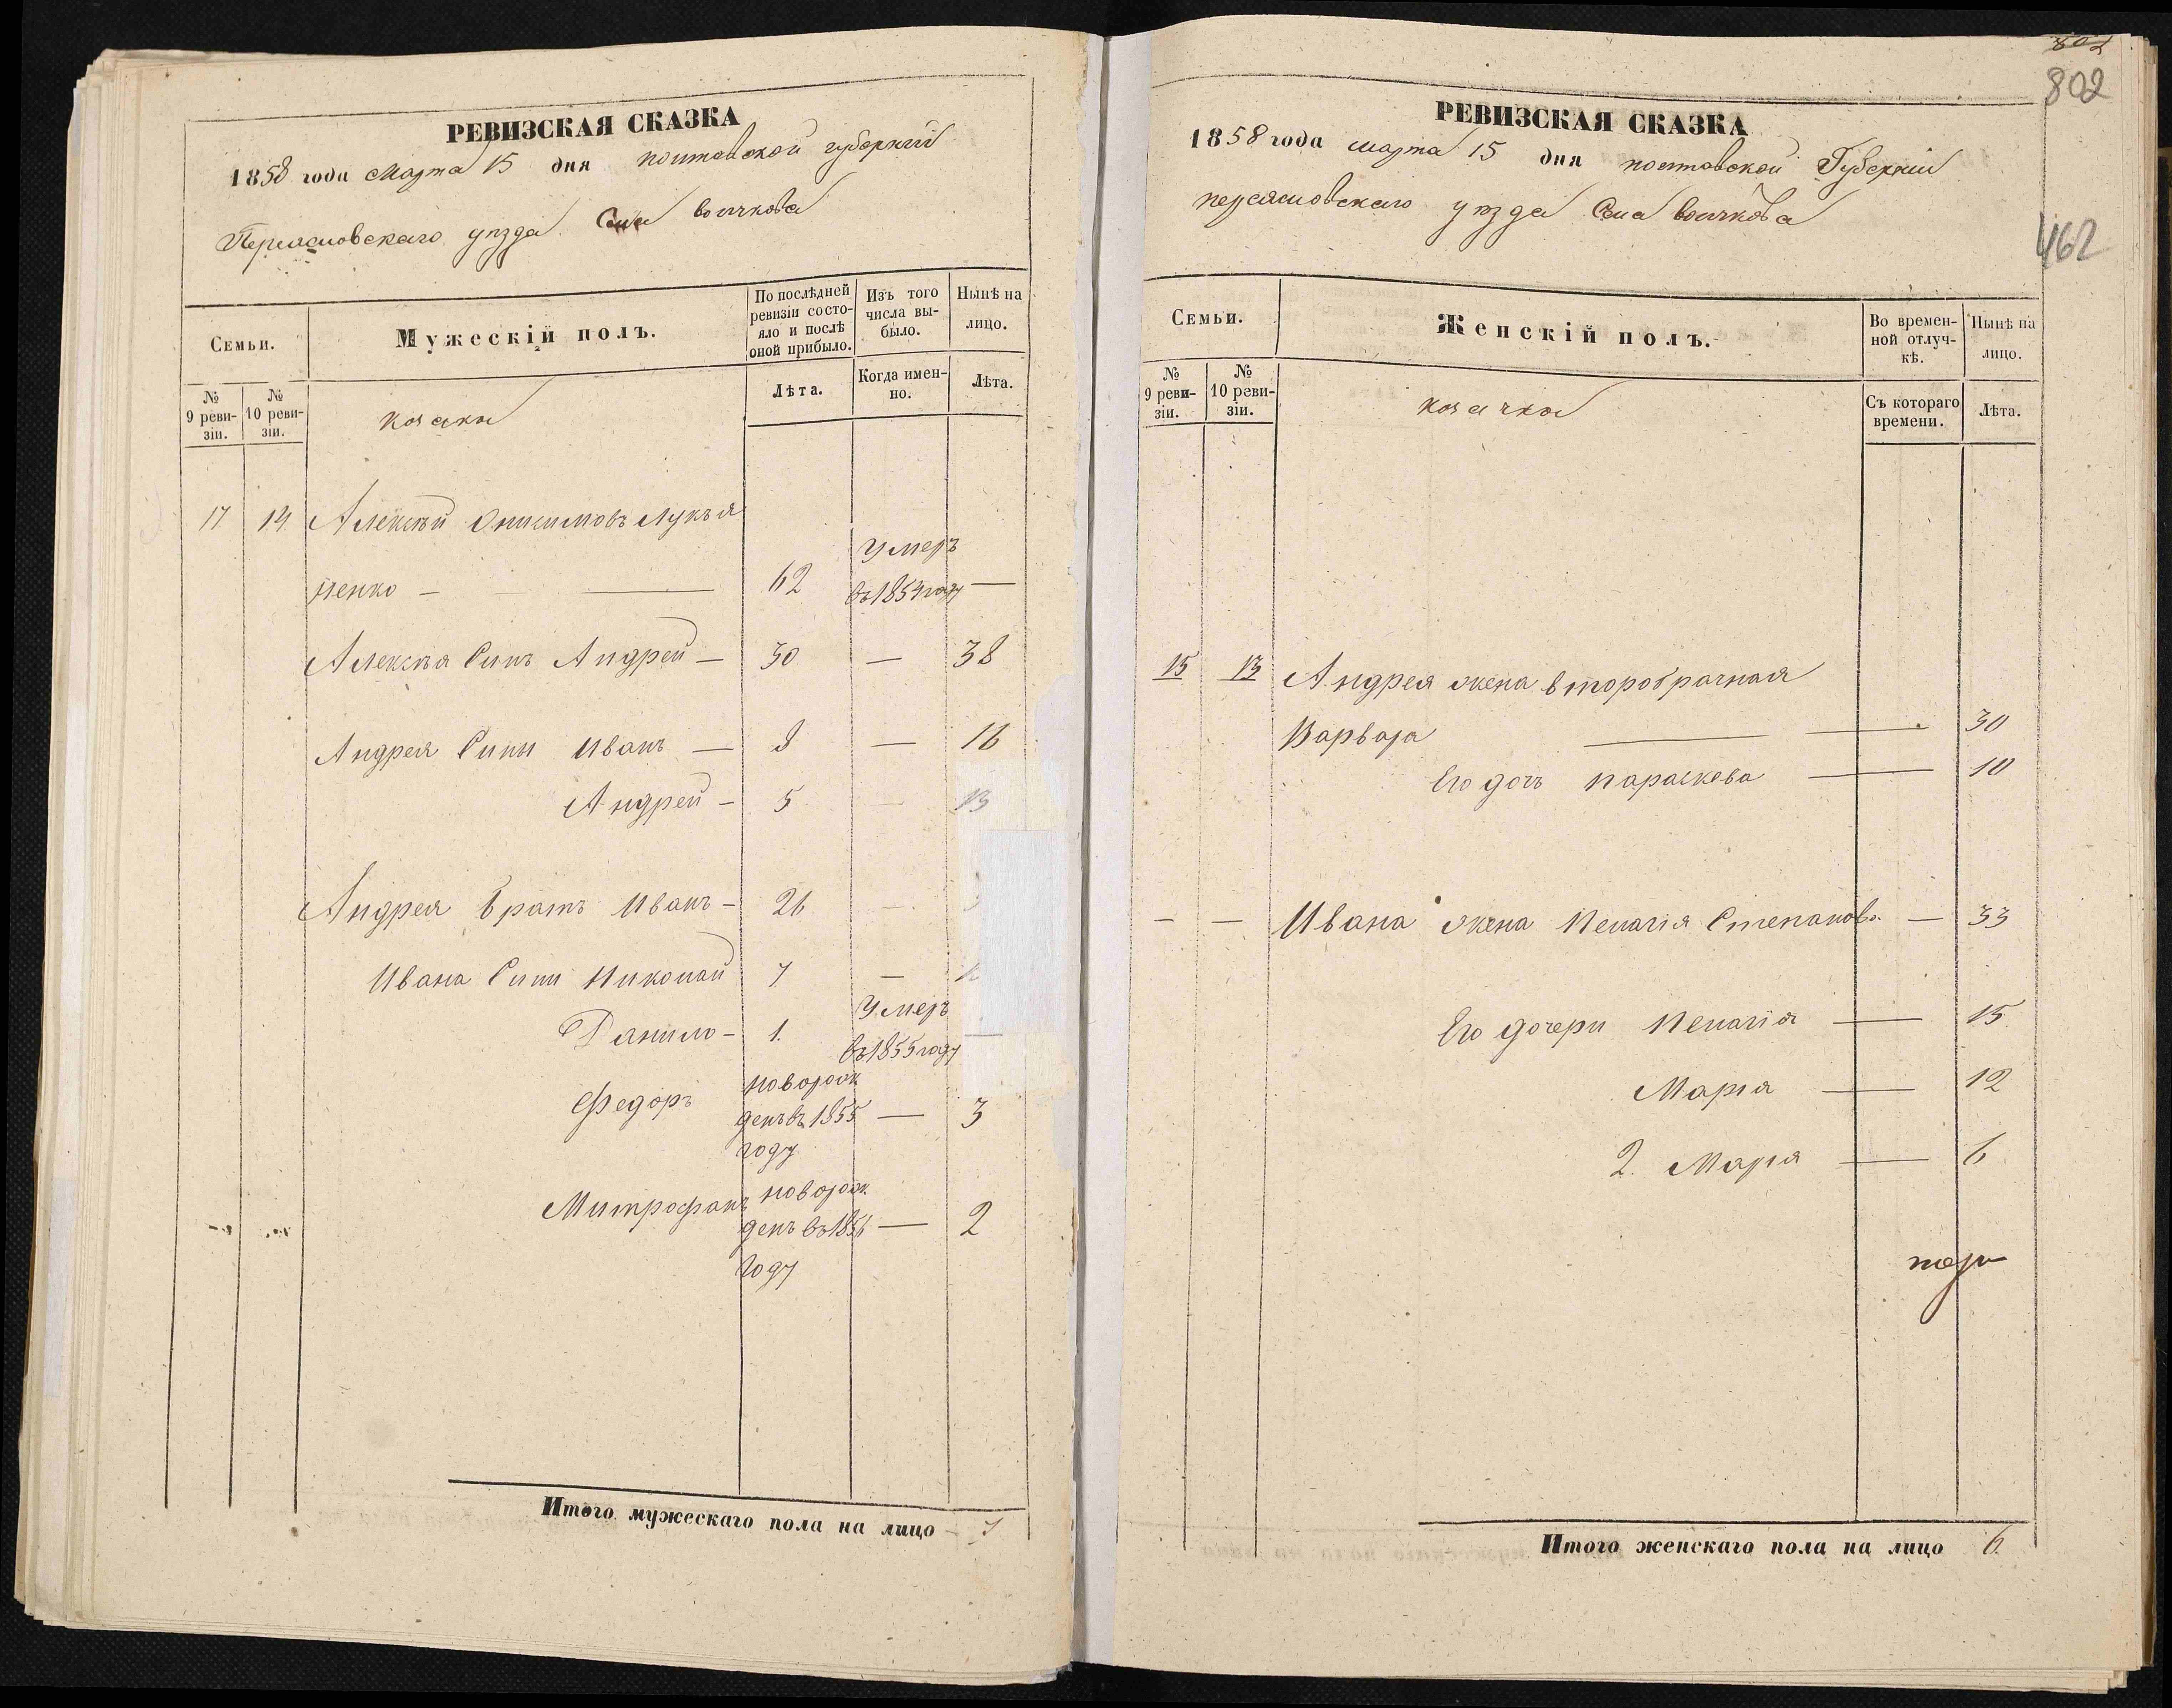 РЕВИЗСКАЯ СКАЗКА
1858 года Марта 15 дня полтавской губернии
Переясловскаго уѣзда Села Волчкова
Семьи.
Мужескій полъ.
По послѣдней ревизіи состояло и послѣ оной прибыло.
Изъ того числа выбыло.
Нынѣ на лицо.
№ 9 ревизіи.
№ 10 ревизіи.
козаки
Лѣта.
Когда именно.
Лѣта.
17 14 Алексѣй Онисимовъ Лукъя
ненко — 62 Умеръ въ 1854 году —
Алексѣя Синъ Андрей — 30 — 38
Андрея Сини Иванъ — 8 — 16
Андрей — 5 — 13
Андрея братъ Иванъ — 26 —
Ивана Сини Николай 7 —
Данило — 1. Умеръ въ 1855 году —
Федоръ новорожденъ въ 1855 году — 3
Митрофанъ новорожденъ въ 1856 году — 2
Итого мужескаго пола на лицо — 7
802
802
462
РЕВИЗСКАЯ СКАЗКА
1858 года марта 15 дня полтавской Губерніи
переясловскаго уѣзда Села Волчкова
Семьи.
Женскій полъ.
Во временной отлучкѣ.
Нынѣ на лицо.
№ 9 ревизіи.
№ 10 ревизіи.
козачки
Съ котораго времени.
Лѣта.
15 13 Андрея жена второбрачная
Варвара — — 30
Его дочь параскева — 10
— — Ивана жена Пелагія Степанова — 33
Его дочери Пелагія — 15
Марія — 12
2. Марія — 6
Итого женскаго пола на лицо 6.